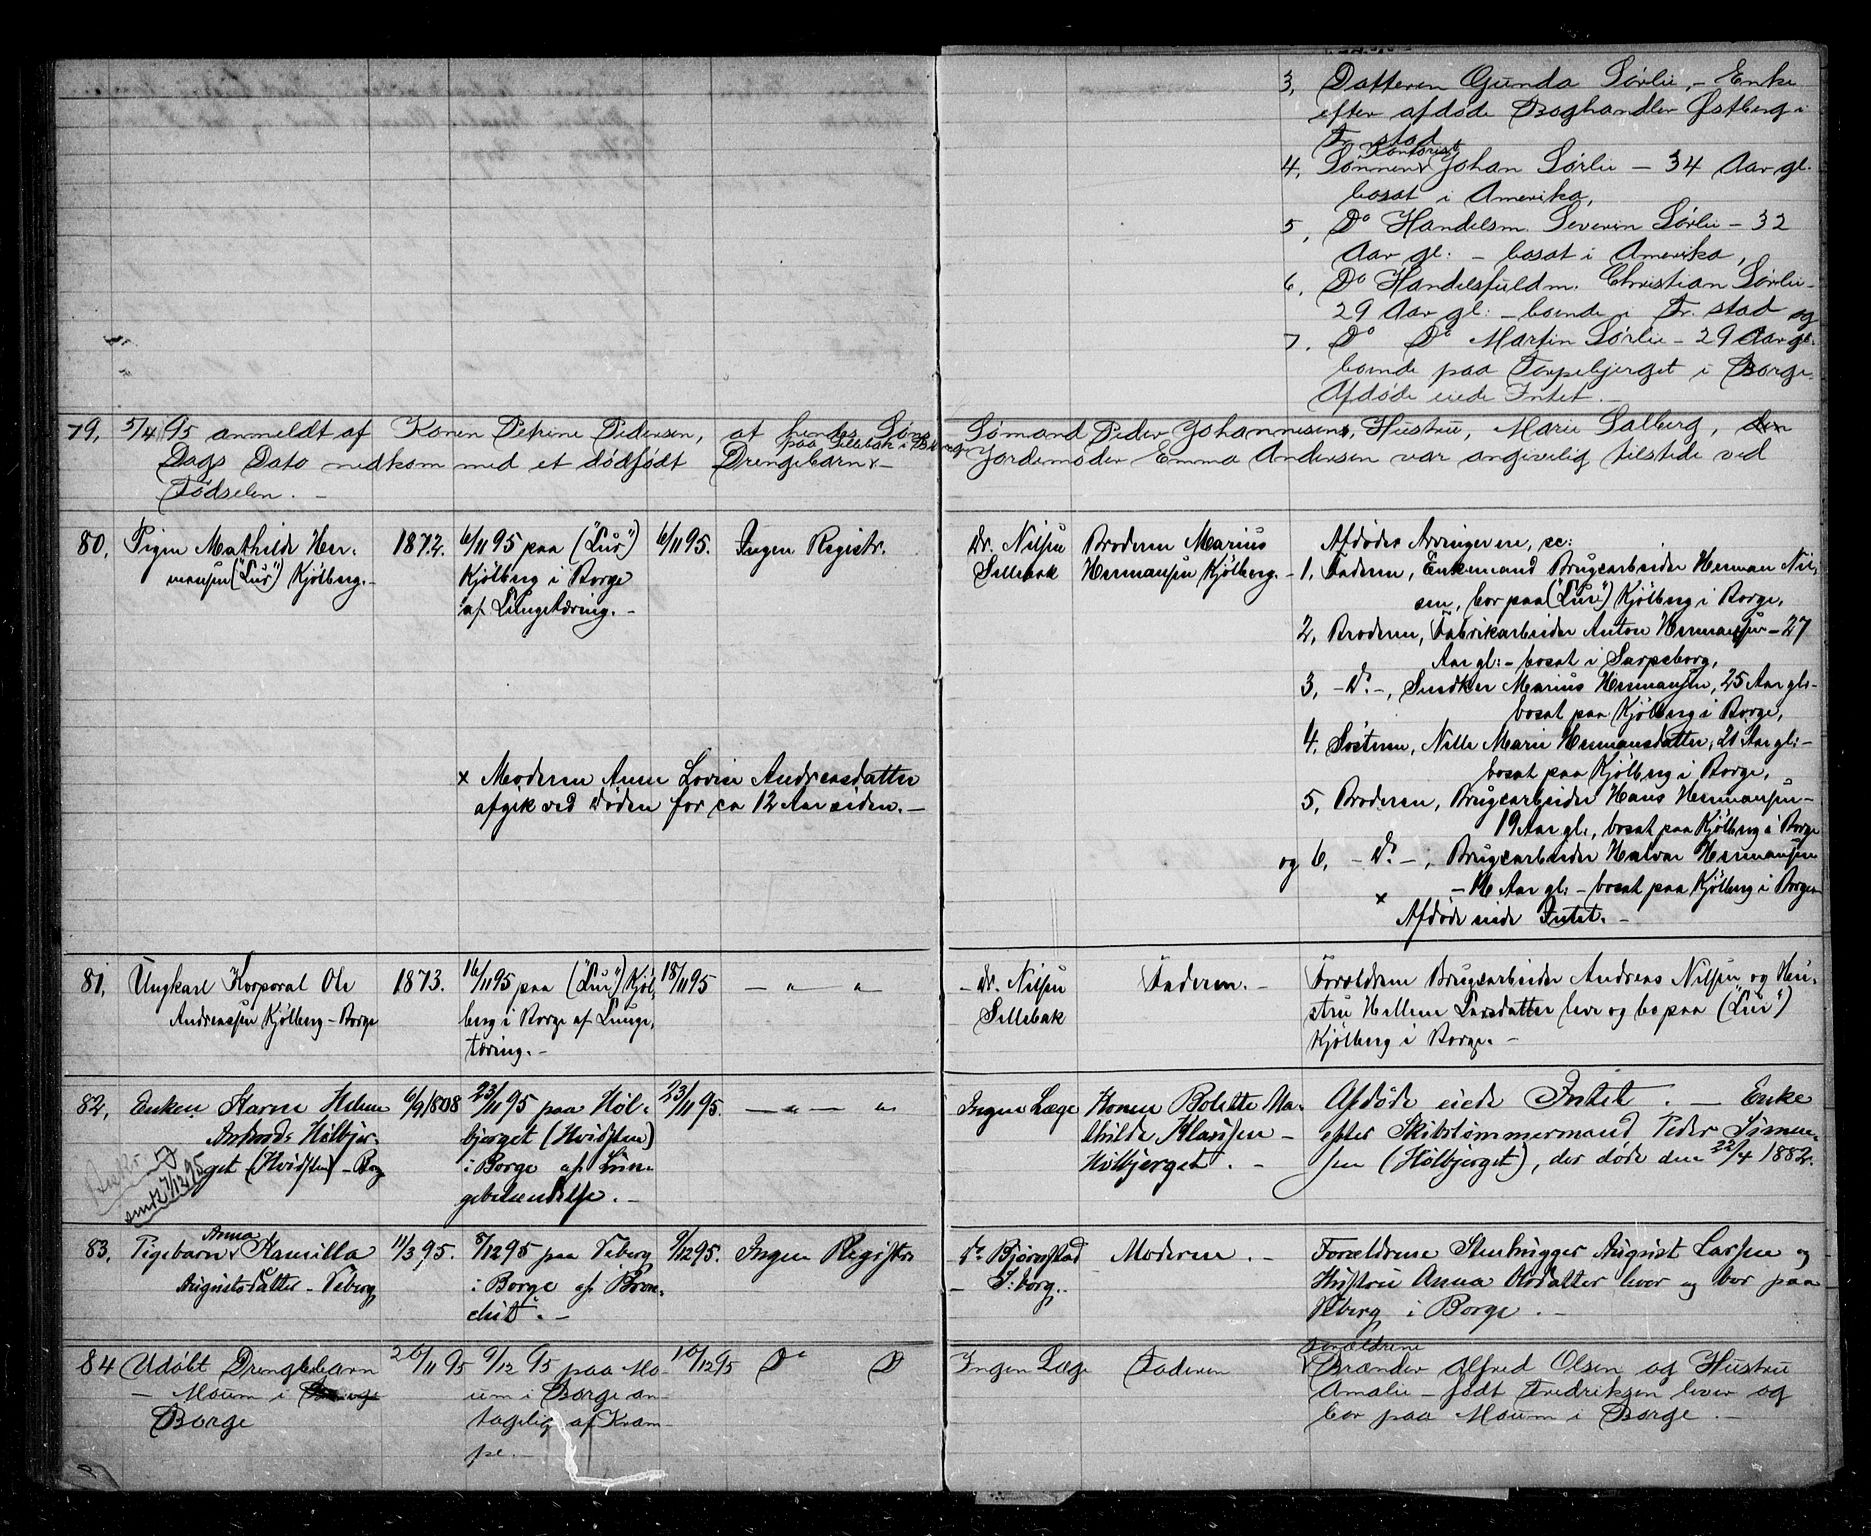 3, Datteren Gunda Sørlie, - Enke
efter afdøde Boghandler Østberg i
Fr. stad
Kontorist
4, Sønnen x Johan Sørlie - 34 Aar gl.
bosat i Amerika,
5, Do Handelsm. Severin Sørlie - 32
Aar gl: - bosat i Amerika,
6, Do Handelsfuldm. Christian Sørlie -
29 Aar gl: - boende i Fr. stad og
7. Do Do Martin Sørlie - 29 Aar gl.
boende paa Torpebjerget i Borge.
Afdøde eiede Intet. -
79, 5/4 95 anmeldt af Karen Petrine Pedersen, at hendes Søns Sømand Peder Johannesens, Hustru, Marie Salberg, den
paa Sellebak i Borge
Dags Dato nedkom med et dødfødt Drengebarn x - Jordemoder Emma Andersen var angivelig tilstede ved
Fødselen. -
80, Pigen Mathilde Her-
mansen ("Lur") Kjölberg. -
1872.
6/11 95 paa ("Lur")
Kjölberg i Borge
af Lungetæring. -
6/11 95.
Ingen Registr.
Dr. Nilsen
Sellebak
Broderen Marius
Hermansen Kjölberg.
Afdødes Arvinger ere, sc:
- 1, Faderen, Enkemand Brugsarbeider Herman Nil-
sen, bor paa ("Lur") Kjölberg i Borge,
2, Broderen, Fabrikarbeider Anton Hermansen - 27
Aar gl: - bosat i Sarpsborg,
3, - Do. -, Snedker Marius Hermansen, 25 Aar gl: -
bosat paa Kjölberg i Borge,
4, Søsteren, Nelle Marie Hermansdatter, 21 Aar gl: -
bosat paa Kjölberg i Borge,
5, Broderen, Brugsarbeider Hans Hermansen -
19 Aar gl:, bosat paa Kjölberg i Borge
og 6, - Do. -, Brugsarbeider Halvor Hermansen
- 16 Aar gl: - bosat paa Kjölberg i Borge
x Afdøde eiede Intet. -
x Moderen Anne Lovise Andreasdatter
afgik ved Døden for ca 12 Aar siden. -
81, Ungkarl Korporal Ole
Andreassen Kjölberg - Borge
1873.
16/11 95 paa ("Lur") Kjöl-
berg i Borge af Lunge-
tæring. -
18/11 95
- " - "
- Dr. Nilsen
Sellebak
Faderen. -
Forældrene Brugsarbeider Andreas Nilsen og Hu-
stru Hellene Larsdatter leve og bo paa ("Lur")
Kjölberg i Borge. -
82, Enken Karen Helene
Holbjer-
get (Hvidsten) - Borge
6/9 1808
23/11 95 paa Hol-
bjerget (Hvidsten)
i Borge af Lun-
gebetændelse. -
23/11 95.
- " - "
Ingen Læge
Konen Bolette Ma-
thilde Klausen -
Holbjerget. -
Afdøde eiede Intet. - Enke
efter Skibstømmermand Peder Simen-
sen (Holbjerget), der døde den 22/4 1882.
sendt 27/12 95
83, Pigebarn x Kamilla
Anna
Augustsdatter - Viberg
11/3 95.
8/12 95 paa Viberg
i Borge af Bron-
chit. -
9/12 95.
Ingen Registr.
Dr. Bjørnstad
- S:borg.
Moderen. -
Forældrene Stenhugger August Larsen og
Hustru Anna Olsdatter lever og bor paa
Viberg i Borge. -
84 Udøbt Drengebarn
- Moum i
Borge
20/11 95
9/12 95 paa Mo-
um i Borge an-
tagelig af Kram-
pe. -
10/12 95
Do D
Ingen Læge
Faderen
Forældrene
x Brænder Alfred Olsen og Hustru
Amalie - født Fredriksen lever og
bor paa Moum i Borge. -